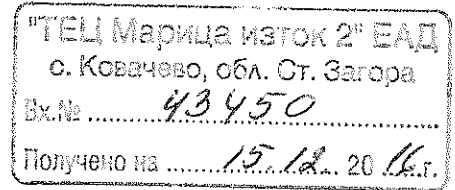 "ТЕЦ Марица изток 2" ЕАД
с. Ковачево, обл. Ст. Загора
Вх.№ ........ 43450 ........
Получено на ........ 15.12. 20 16.г.